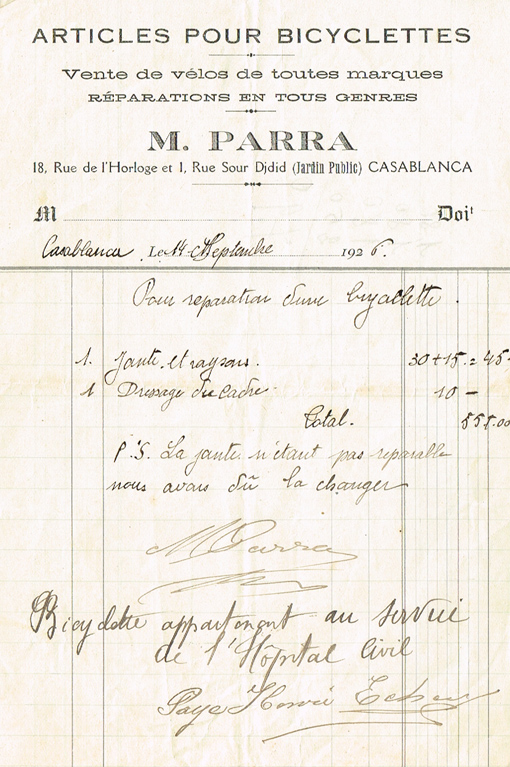 ARTICLES POUR BICYCLETTES
Vente de vélos de toutes marques
RÉPARATIONS EN TOUS GENRES
M. PARRA
18, Rue de l'Horloge et 1, Rue Sour Djdid (Jardin Public) CASABLANCA
M Doit
Casablanca, Le 14 Septembre 1926.
Pour reparation d'une bicyclette.
1. Jante et rayons. 30+15.= 45-
1 Dressage du cadre. 10 -
Total. 55.00
P.S. La jante n'étant pas reparable
nous avons dû la changer
M Parra
Bicyclette appartenant au service
de l'Hôpital Civil
Paye